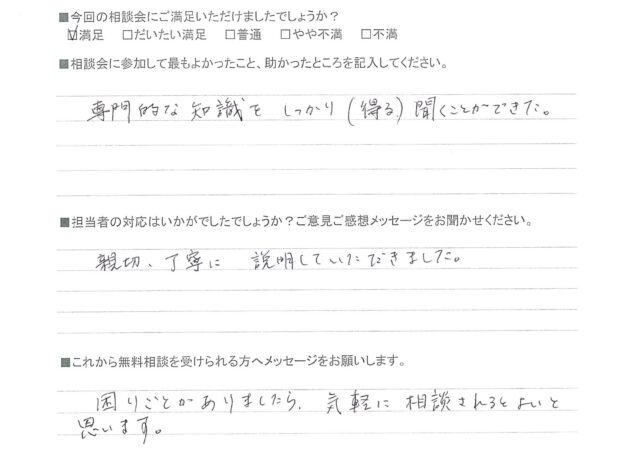 ■今回の相談会にご満足いただけましたでしょうか?
☑満足 □だいたい満足 □普通 □やや不満 □不満
■相談会に参加して最もよかったこと、助かったところを記入してください。
専門的な知識を しっかり (得る) 聞くことができた。
■担当者の対応はいかがでしたでしょうか?ご意見ご感想メッセージをお聞かせください。
親切、丁寧に 説明していただきました。
■これから無料相談を受けられる方へメッセージをお願いします。
困りごとがありましたら、気軽に 相談されるとよいと
思います。